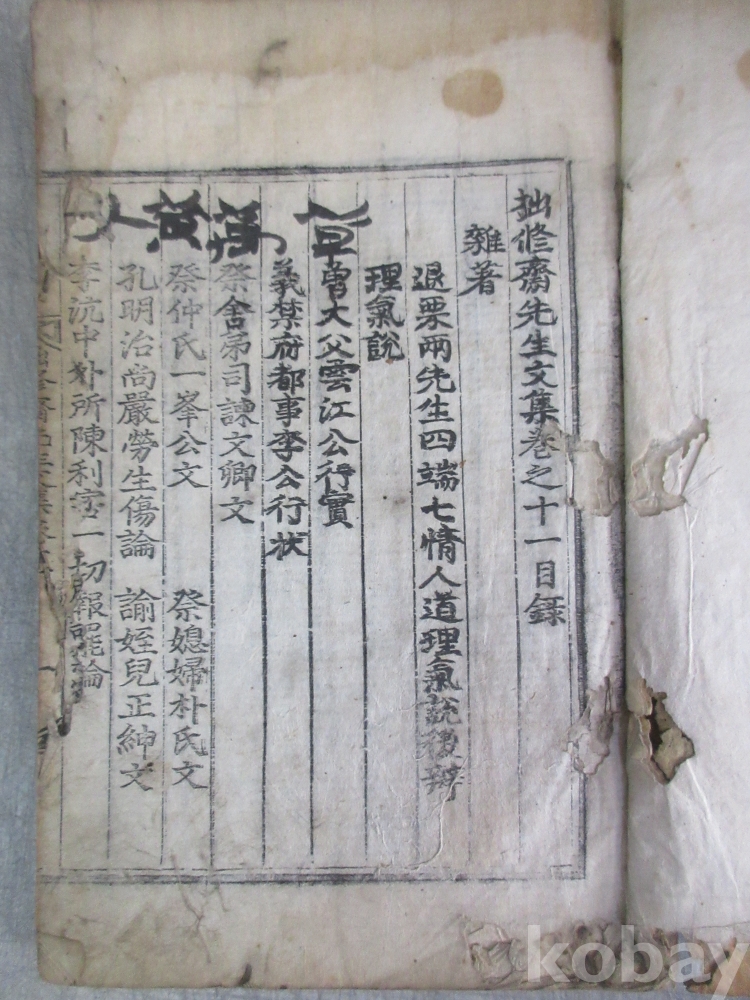 拙修齋先生文集卷之十一目錄
雜著
退栗兩先生四端七情人道理氣說後辨
理氣說
曾大父雲江公行實
義禁府都事李公行狀
祭舍弟司諫文卿文
祭仲氏一峯公文 祭媳婦朴氏文
孔明治尚嚴勞生傷論 諭姪兒正紳文
李沆中外所陳利害一切報罷論
kobay